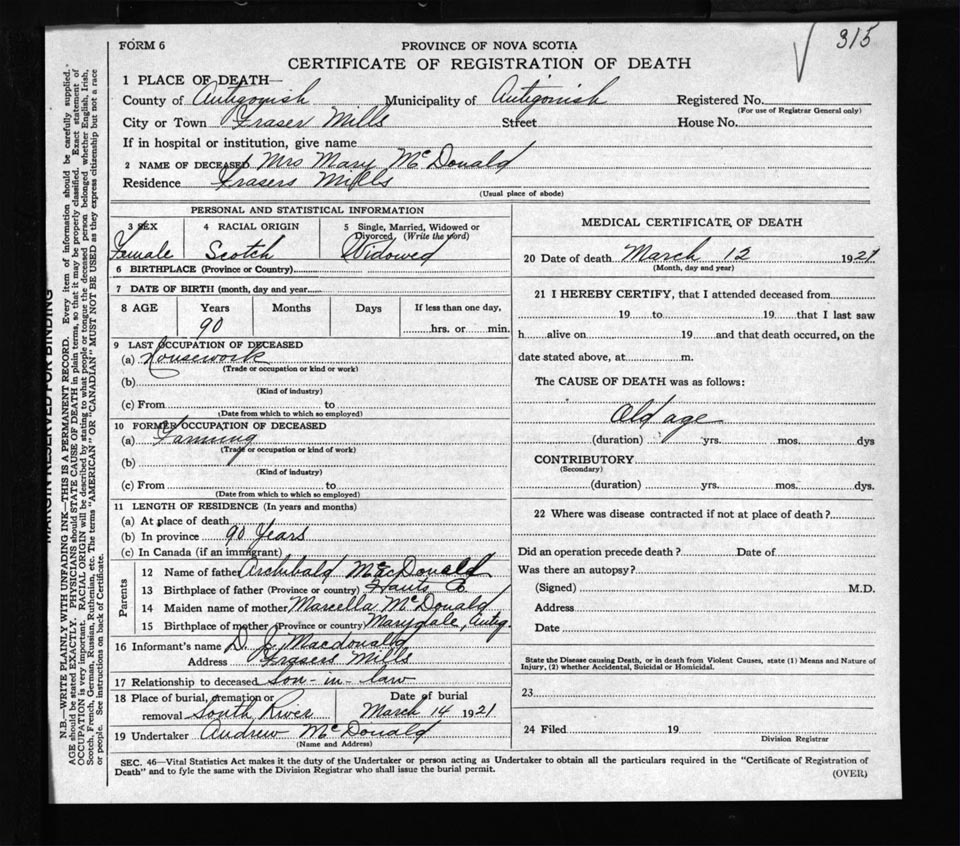 315
FORM 6
PROVINCE OF NOVA SCOTIA
CERTIFICATE OF REGISTRATION OF DEATH
1 PLACE OF DEATH—
County of Antigonish Municipality of Antigonish Registered No.
(For use of Registrar General only)
City or Town Fraser Mills Street House No.
If in hospital or institution, give name
2 NAME OF DECEASED Mrs Mary McDonald
Residence Frasers Mills
(Usual place of abode)
PERSONAL AND STATISTICAL INFORMATION
3 SEX 4 RACIAL ORIGIN 5 Single, Married, Widowed or Divorced, (Write the word)
Female Scotch Widowed
6 BIRTHPLACE (Province or Country)
7 DATE OF BIRTH (month, day and year
8 AGE Years Months Days If less than one day,
90 hrs. or min.
9 LAST OCCUPATION OF DECEASED
(a) Housework
(Trade or occupation or kind or work)
(b)
(Kind of industry)
(c) From to
(Date from which to which so employed)
10 FORMER OCCUPATION OF DECEASED
(a) Farming
(Trade or occupation or kind of work)
(b)
(Kind of industry)
(c) From to
(Date from which to which so employed)
11 LENGTH OF RESIDENCE (In years and months)
(a) At place of death
(b) In province 90 Years
(c) In Canada (if an immigrant)
Parents
12 Name of father Archibald MacDonald
13 Birthplace of father (Province or country) Hants Co.
14 Maiden name of mother Marcella McDonald
15 Birthplace of mother (Province or country Marydale, Antig.
16 Informant's name D. J. Macdonald
Address Frasers Mills
17 Relationship to deceased Son-in-law
18 Place of burial, cremation or Date of burial
removal South River March 14 1921
19 Undertaker Andrew McDonald
(Name and Address)
MEDICAL CERTIFICATE OF DEATH
20 Date of death March 12 1921
(Month, day and year)
21 I HEREBY CERTIFY, that I attended deceased from
19 to 19 that I last saw
h alive on 19 and that death occurred, on the
date stated above, at m.
The CAUSE OF DEATH was as follows:
Old age
(duration) yrs. mos. dys
CONTRIBUTORY
(Secondary)
(duration) yrs. mos. dys.
22 Where was disease contracted if not at place of death?
Did an operation precede death? Date of
Was there an autopsy?
(Signed) M.D.
Address
Date
State the Disease causing Death, or in death from Violent Causes, state (1) Means and Nature of
Injury, (2) whether Accidental, Suicidal or Homicidal.
23
24 Filed 19
Division Registrar
SEC. 46—Vital Statistics Act makes it the duty of the Undertaker or person acting as Undertaker to obtain all the particulars required in the "Certificate of Registration of
Death" and to fyle the same with the Division Registrar who shall issue the burial permit.
(OVER)
MARGIN RESERVED FOR BINDING
N.B.—WRITE PLAINLY WITH UNFADING INK—THIS IS A PERMANENT RECORD. Every item of information should be carefully supplied.
AGE should be stated EXACTLY. PHYSICIANS should STATE CAUSE OF DEATH in plain terms, so that it may be properly classified. Exact statement of
OCCUPATION is very important. RACIAL ORIGIN will be described by stating to what people or tongue the deceased person belonged whether English, Irish,
Scotch, French, German, Russian, Ruthenian, etc. The terms "AMERICAN" OR "CANADIAN" MUST NOT BE USED as they express citizenship but not a race
or people. See instructions on back of Certificate.